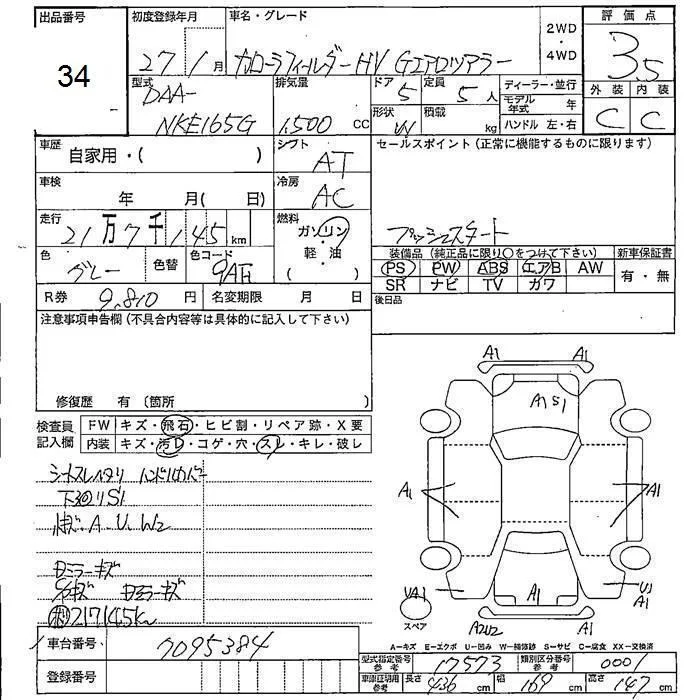 出品番号
34
初度登録年月
27 / 1 月
車名・グレード
カローラフィールダーHV Gエアロツアラー
2WD
・
4WD
評価点
3.5
型式
DAA-
NKE165G
排気量
1,500 CC
ドア
5
定員
5 人
形状
W
積載
kg
ディーラー・並行
モデル年式 年
ハンドル 左・右
外装 内装
C C
車歴
自家用・( )
シフト
AT
セールスポイント (正常に機能するものに限ります)
プッシュスタート
車検
年 月( 日)
冷房
AC
走行
21万7千145 km
燃料
ガソリン
・
軽・油
( )
色
グレー
色替
色コード
9AH
装備品 (純正品に限り○をつけて下さい)
PS PW ABS エアB AW
SR ナビ TV カワ
新車保証書
有・無
R券 9,810 円
名変期限 月 日
後日品
注意事項申告欄(不具合内容等は具体的に記入して下さい)
修復歴 有 (箇所 )
検査員
記入欄
FW キズ・飛石・ヒビ割・リペア跡・X要
内装 キズ・汚れ・コゲ・穴・スレ・キレ・破レ
シートスレヘタリ ハンドルカバー
下廻りS1
A・U・W2
ドミラーキズ
ドミラーキズ
217145km
A1 A1
A1 S1
A1 A1
UA1
スペア
A1
A2U2
U1
A1
A-キズ E-エクボ U-凹み W-補修跡 S-サビ C-腐食 XX-交換済
車台番号
7095384
登録番号
型式指定番号
参考
17573
類別区分番号
参考
0001
車庫証明用
参考
長さ 436 cm
幅 169 cm
高さ 147 cm